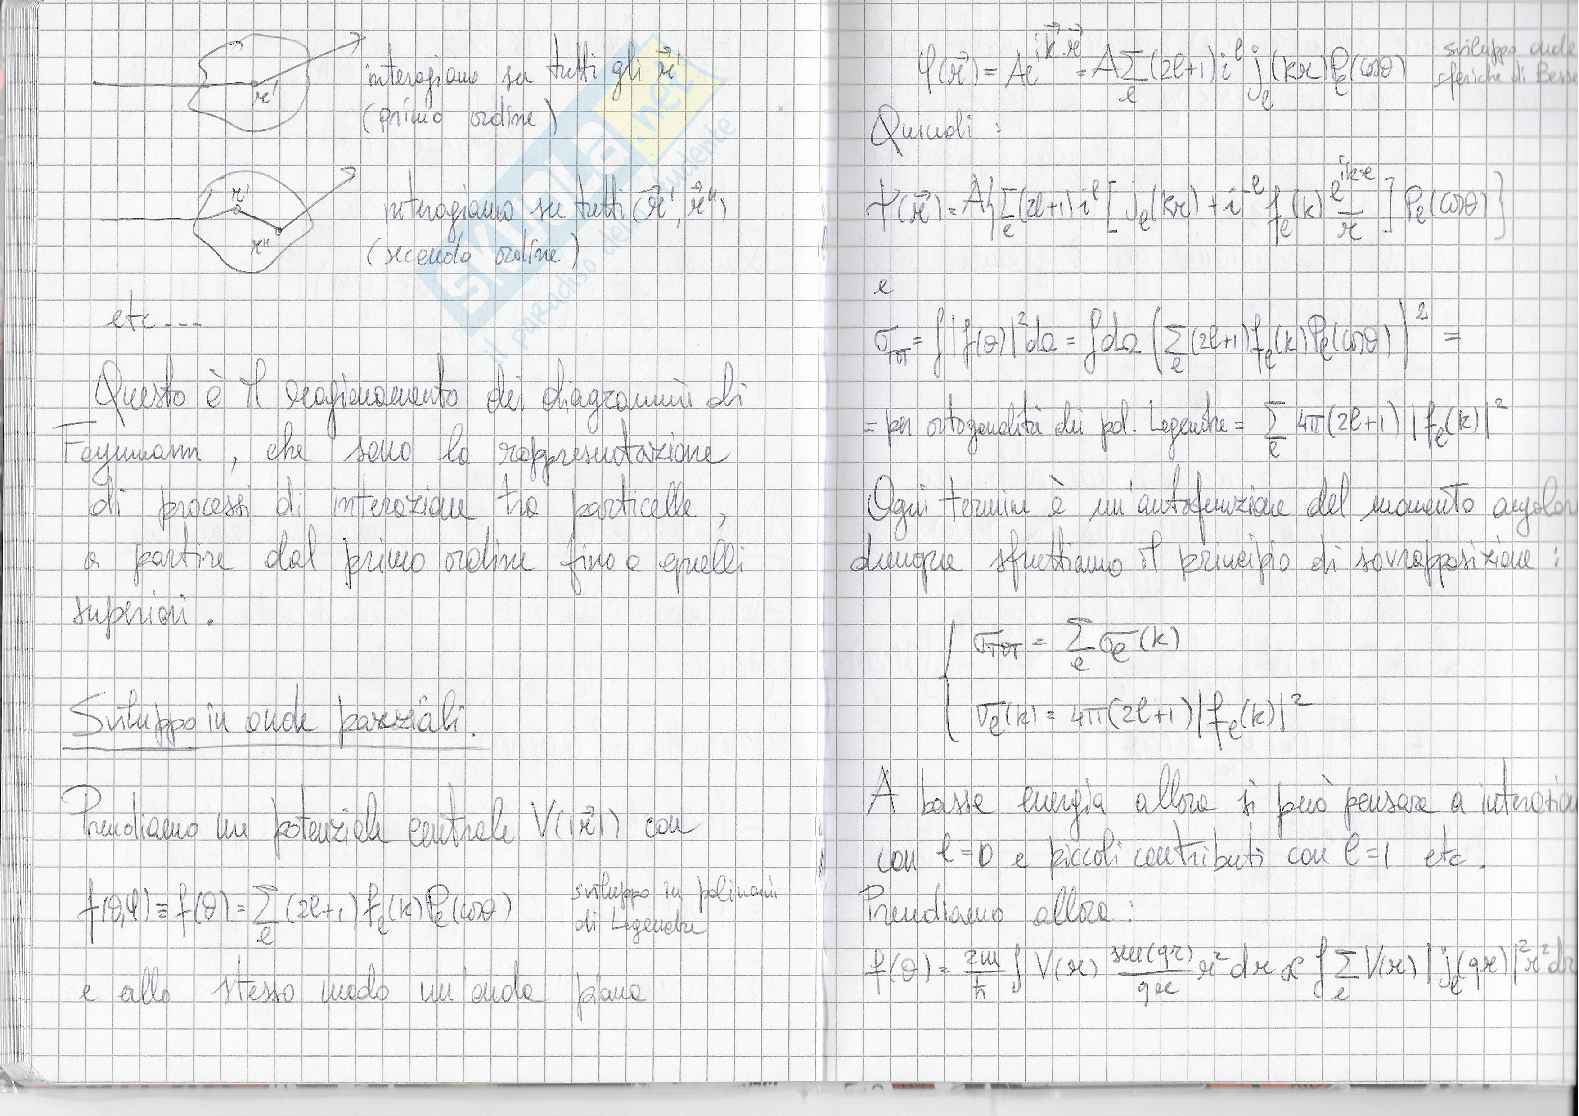 interagiamo su tutti gli r⃗'
(primo ordine)
r'
interagiamo su tutti (r⃗', r⃗'')
(secondo ordine)
r'
r''
etc ---
Questo è il ragionamento dei diagrammi di
Feynmann, che sono la rappresentazione
di processi di interazione tra particelle,
a partire dal primo ordine fino a quelli
superiori.
Sviluppo in onde parziali.
Prendiamo un potenziale centrale V(|r⃗|) con
f(θ,φ) ≡ f(θ) = Σ_l (2l+1) f_l(k) P_l(cosθ)
sviluppo in polinomi
di Legendre
e allo stesso modo un'onda piana
φ(r⃗) = Ae^{ik⃗·r⃗} = A Σ_l (2l+1) i^l j_l(kr) P_l(cosθ)
sviluppo onde
sferiche di Besse
Quindi:
ψ(r⃗) = A{Σ_l (2l+1) i^l [j_l(kr) + i^{-l} f_l(k) e^{ikr}/r] P_l(cosθ)}
e
σ_TOT = ∫|f(θ)|² dΩ = ∫dΩ (Σ_l (2l+1) f_l(k) P_l(cosθ))² =
= per ortogonalità dei pol. Legendre = Σ_l 4π(2l+1)|f_l(k)|²
Ogni termine è un'autofunzione del momento angolar
dunque sfruttiamo il principio di sovrapposizione:
σ_TOT = Σ_l σ_l(k)
σ_l(k) = 4π(2l+1)|f_l(k)|²
A basse energia allora si può pensare a interazion
con l=0 e piccoli contributi con l=1 etc.
Prendiamo allora:
f(θ) = 2m/ħ ∫ V(r) sen(qr)/qr r² dr ∝ ∫ Σ_l V(r) |j_l(qr)|² r² dr
SKUOLA.net
il paradiso dello studente